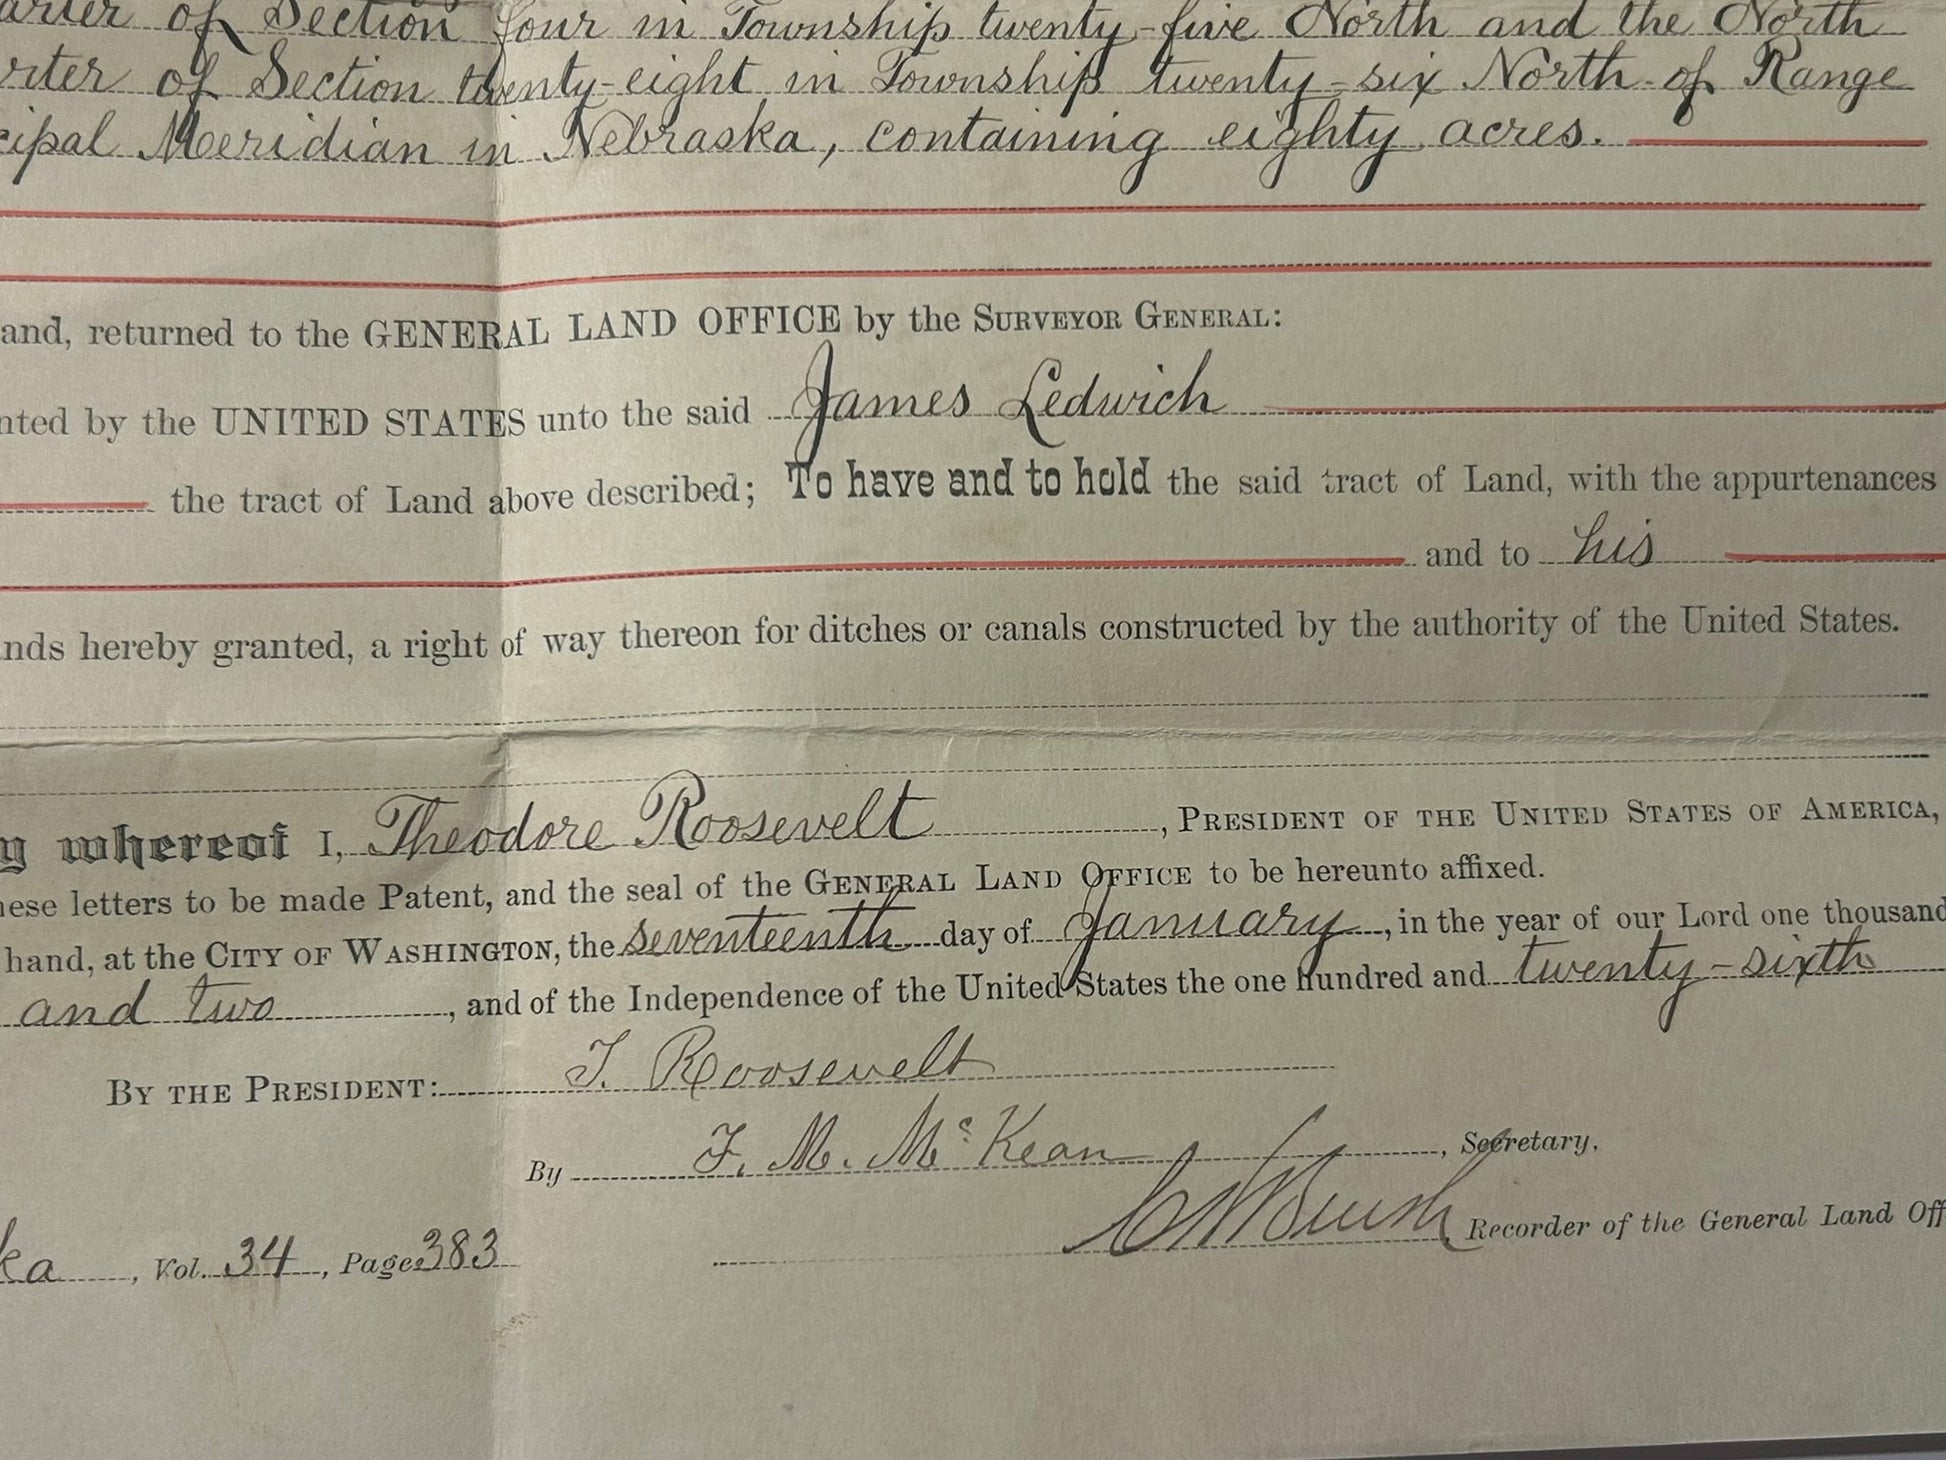 arter of Section four in Township twenty-five North and the North
rter of Section twenty-eight in Township twenty-six North of Range
cipal Meridian in Nebraska, containing eighty acres.
and, returned to the GENERAL LAND OFFICE by the SURVEYOR GENERAL:
nted by the UNITED STATES unto the said James Ledwich
the tract of Land above described; To have and to hold the said tract of Land, with the appurtenances
and to his
nds hereby granted, a right of way thereon for ditches or canals constructed by the authority of the United States.
y whereof I, Theodore Roosevelt, PRESIDENT OF THE UNITED STATES OF AMERICA,
hese letters to be made Patent, and the seal of the GENERAL LAND OFFICE to be hereunto affixed.
hand, at the CITY OF WASHINGTON, the seventeenth day of January, in the year of our Lord one thousand
and two, and of the Independence of the United States the one hundred and twenty-sixth
BY THE PRESIDENT: T. Roosevelt
By F. M. McKean, Secretary.
C H Brush Recorder of the General Land Off
ka, Vol. 34, Page 383